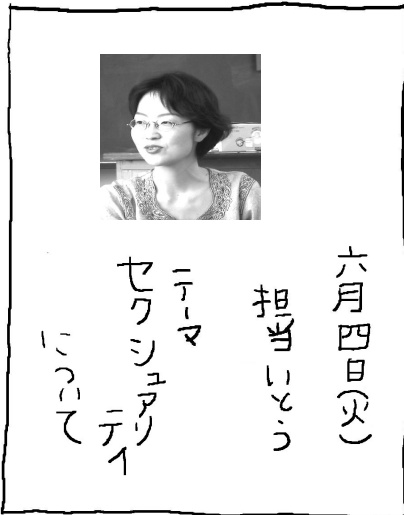 六月四日(火)
担当いとう
テーマ
セクシュアリ
ティ
について